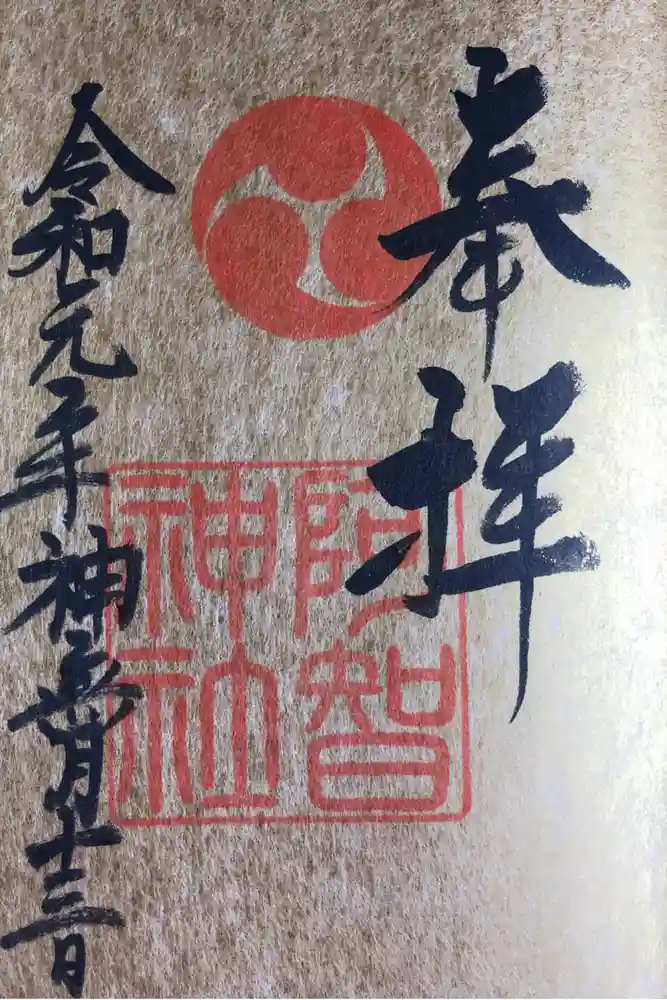 奉拝
阿智
神社
令和元年神無月十三日